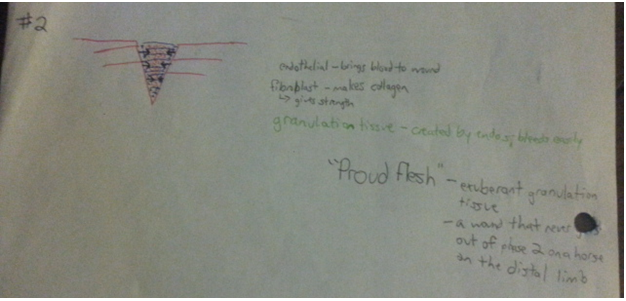 #2
endothelial - brings blood to wound
fibroblast - makes collagen
↳ gives strength
granulation tissue - created by endos; bleeds easily
"Proud flesh" - exuberant granulation
tissue
- a wound that never
out of phase 2 on a horse
on the distal limb